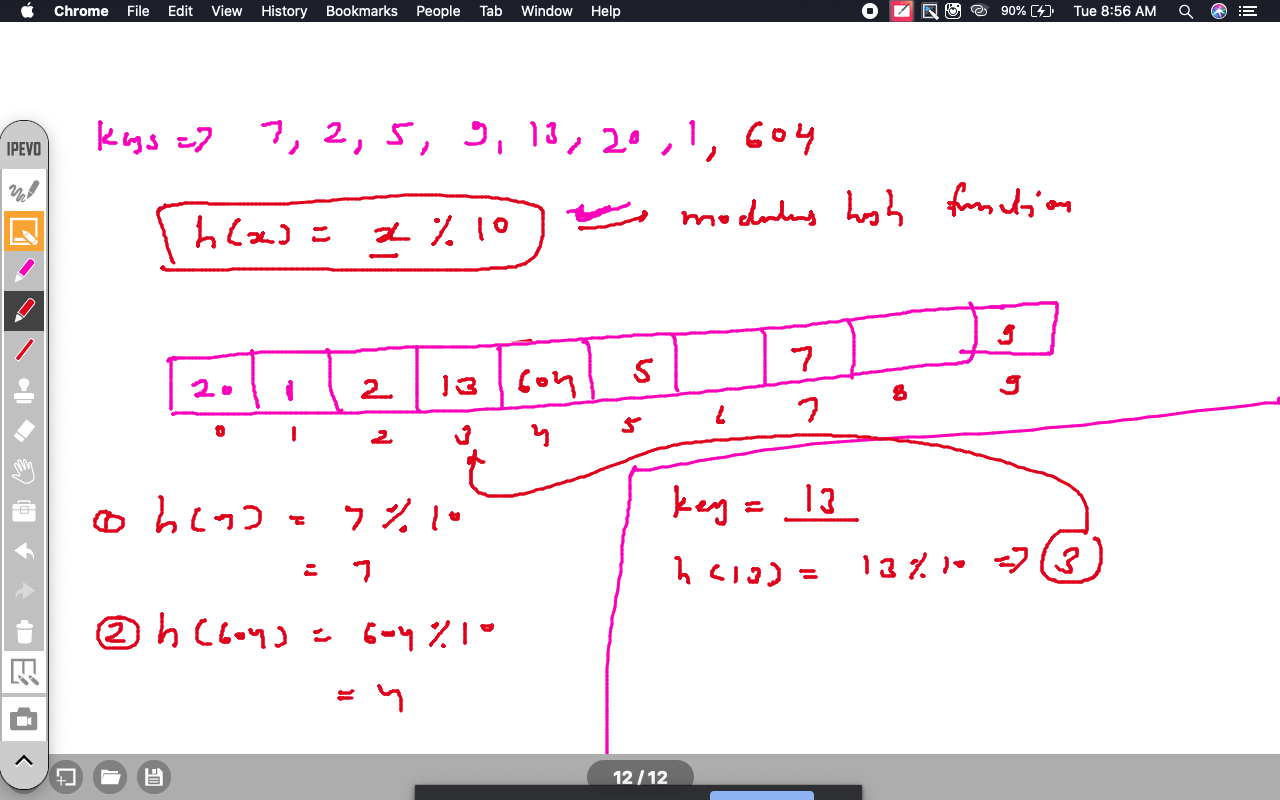 Chrome File Edit View History Bookmarks People Tab Window Help 90% Tue 8:56 AM
IPEVO
keys => 7, 2, 5, 9, 13, 20, 1, 604
h(x) = x % 10 modulus hash function
20 1 2 13 604 5 7 9
0 1 2 3 4 5 6 7 8 9
① h(7) = 7 % 10
= 7
② h(604) = 604 % 10
= 4
key = 13
h(13) = 13 % 10 => 3
12 / 12